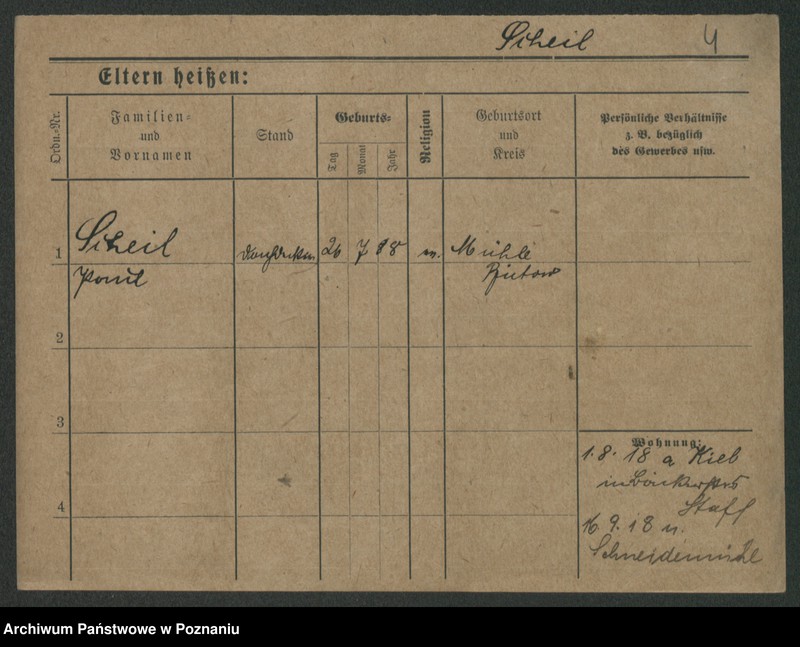 Scheil 4
Eltern heißen:
Ordn.-Nr.
Familien-
und
Vornamen
Stand
Geburts-
Tag
Monat
Jahr
Religion
Geburtsort
und
Kreis
Persönliche Verhältnisse
z. B. bezüglich
des Gewerbes usw.
1 Scheil 26 7 Mühle
Paul Bütow
2
3
4
Wohnung:
1.8.18 a Kieb
in
Staff
16.9.18 n.
Schneidemühl
Archiwum Państwowe w Poznaniu